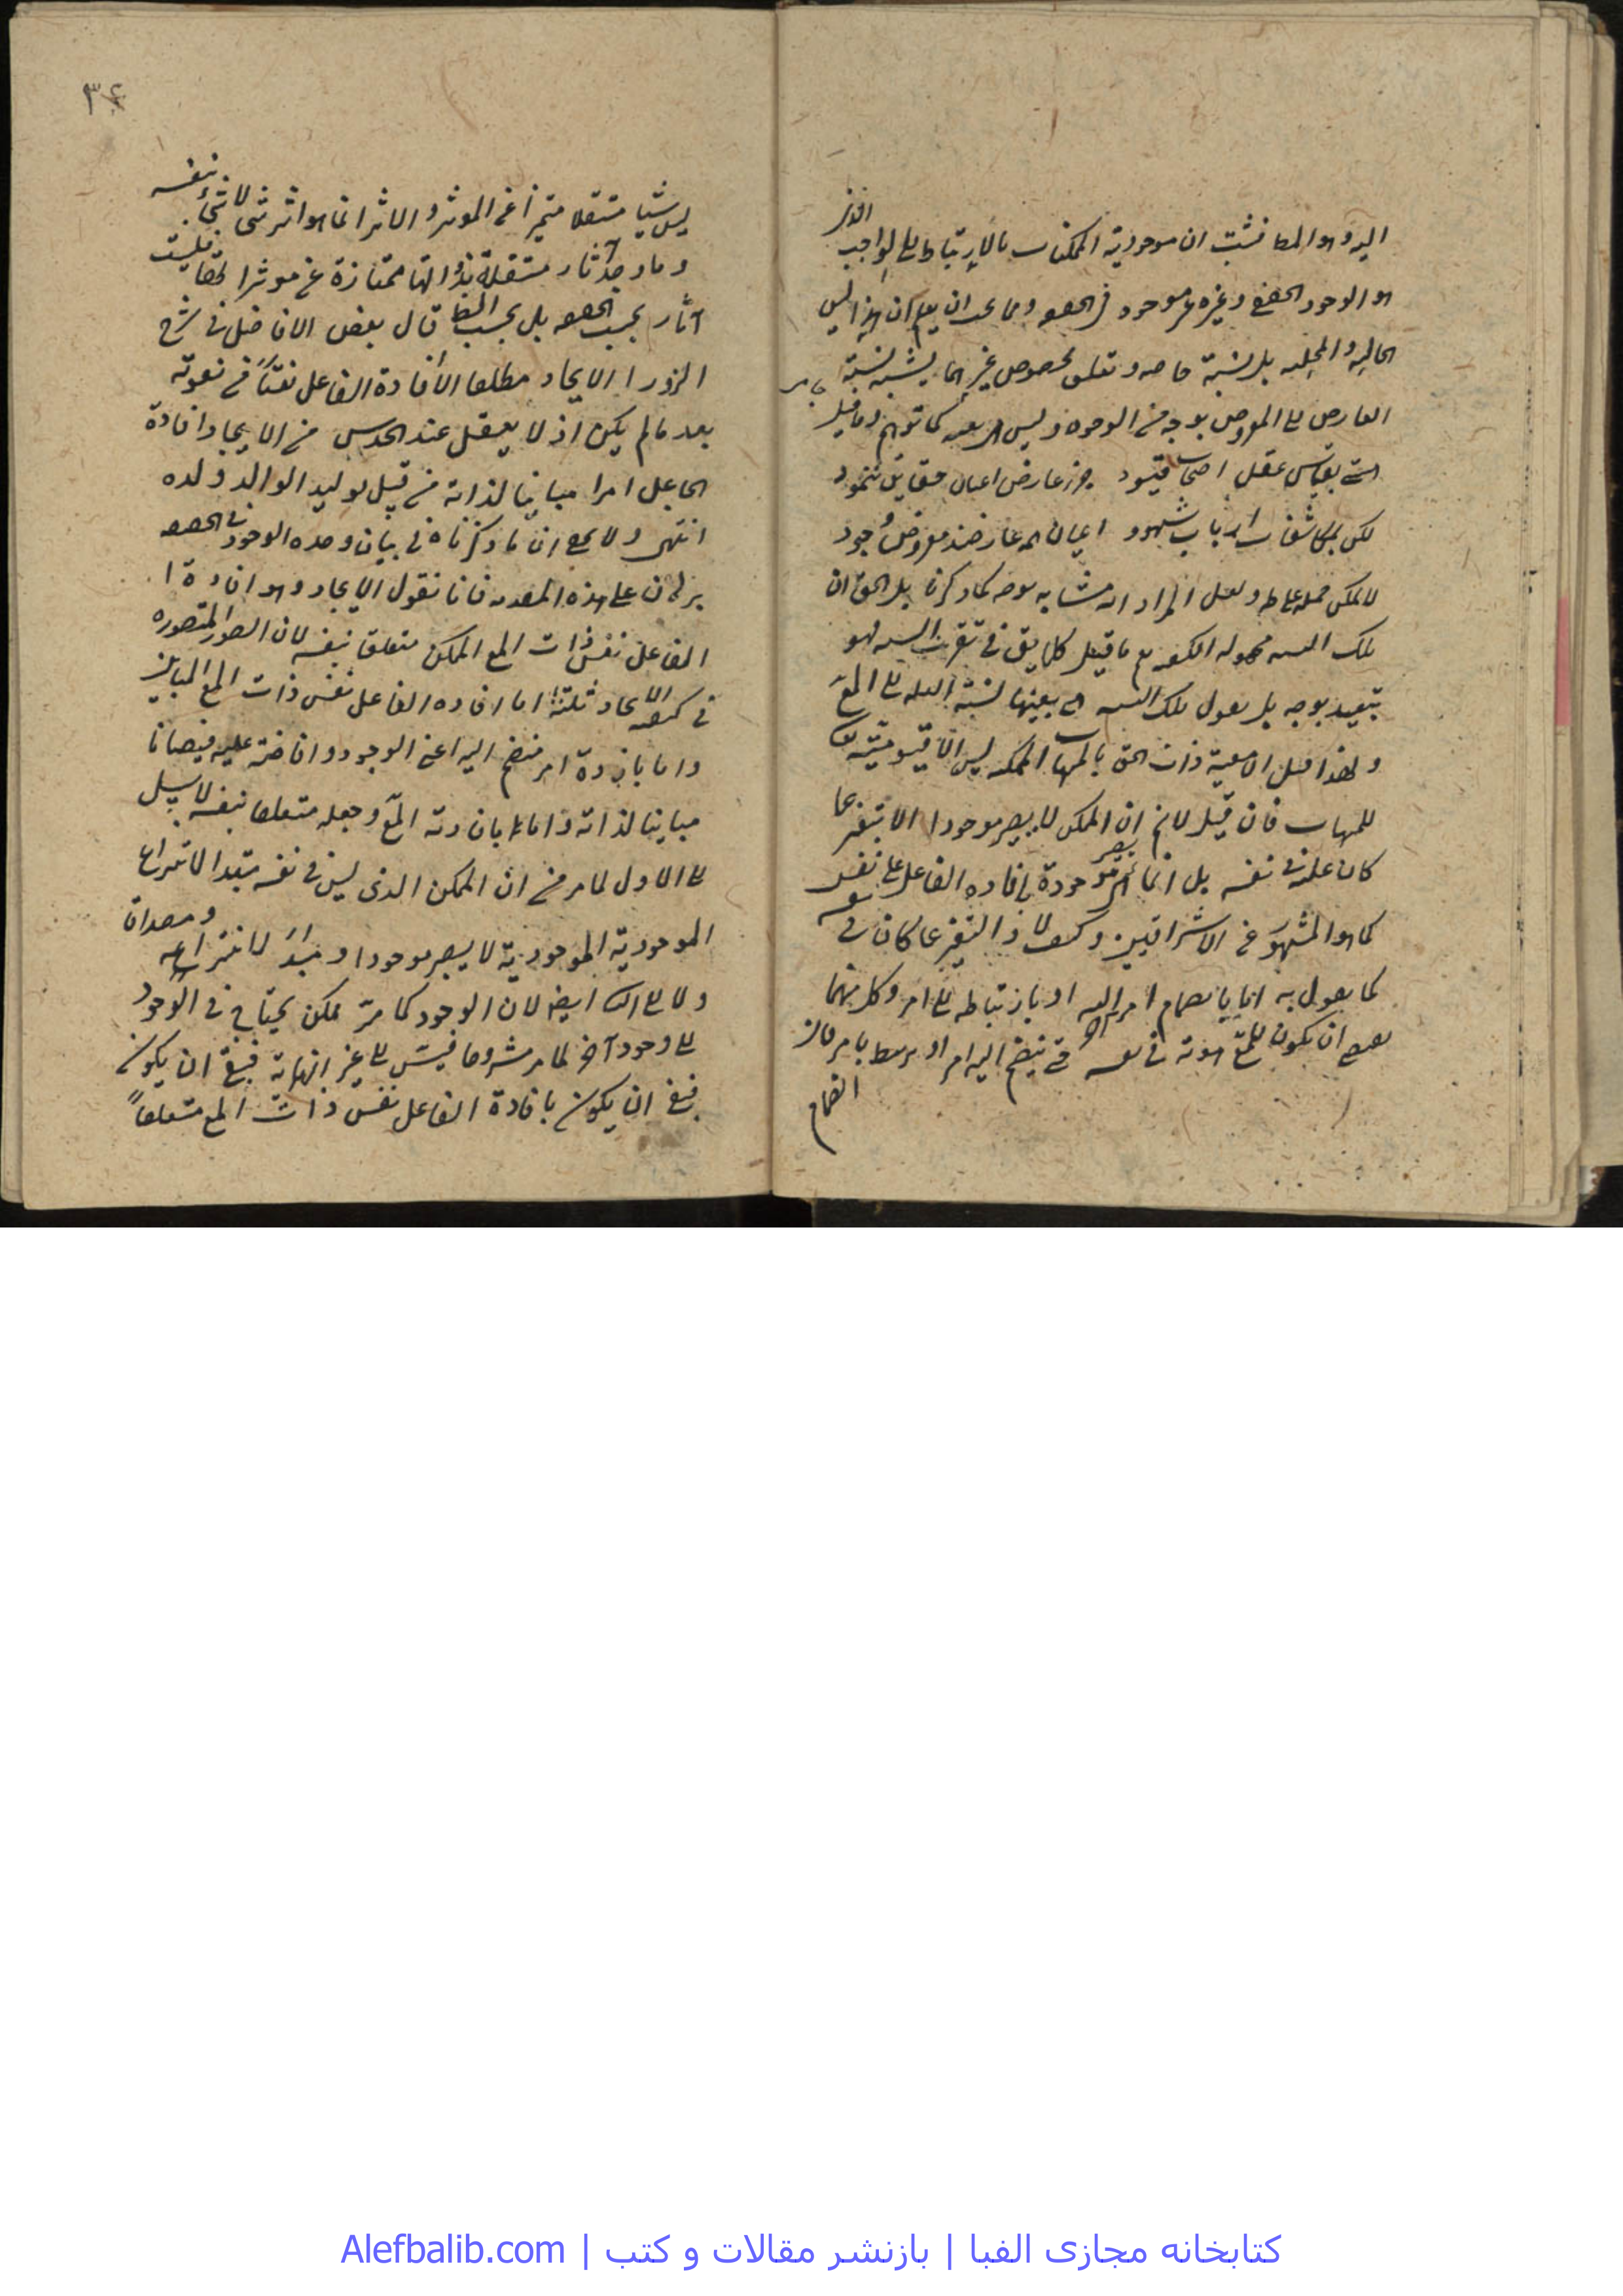 اليه وهو المط فثبت ان موجودية الممكنات بالارتباط الى الواجب الذى
هو الوجود الحقيقى وغيره غير موجود فى الحقيقة ومما يجب ان يعلم ان هذا ليس
الحالية والمحلية بل نسبة خاصة وتعلق مخصوص غير انها يشبه نسبة
العارض الى المعروض بوجه من الوجوه وليس هى بعينه كما توهم وما قيل
هستى بقياس عقل اصحاب قيود جز عارض اعيان حقايق ننمود
لكن بمكاشفات ارباب شهود اعيان همه عارضند معروض وجود
لا يمكن حمله على ظ ولعل المراد انه مشابه بوجه كما ذكرنا بل الحق ان
تلك النسبة مجهولة الكيفية مع ما قيل كل ما يق فى تقريب النسبة فهو
تبعيد بوجه بل يقول تلك النسبة هى بعينها نسبة العلة الى المع
ولهذا قيل ان معية ذات الحق بالمهيات الممكنة ليس الا قيوميته تع
للمهيات فان قيل لانم ان الممكن لا يصير موجودا الا بتغير عما
كان عليه فى نفسه بل انما يصير موجودة بافادة الفاعل على نفس
كما هو المشهور عن الاشراقيين وكيف لا والتغير عما كان فى نفسه
كما يقول به اما بانضمام امر اليه او بارتباطه الى امر وكل منهما
يقتضى ان يكون للمع هوية فى نفسه حتى ينضم اليه امر او يرتبط بامر فان
انضمام
٣٤
ليس شيئا مستقلا متميزا عن الموثر والاثر انما هو اثر شئ لا شئ بنفسه
وما وجد آثار مستقلة بذواتها ممتازة عن موثراتها فليست
آثار بحسب الحقيقة بل بحسب الظ قال بعض الافاضل فى شرح
الزوراء الايجاد مطلقا لافادة الفاعل نعتا من نعوته
بعد ما لم يكن اذ لا يعقل عند الحدس من الايجاد افادة
الجاعل امرا مباينا لذاته من قبيل توليد الوالد ولده
انتهى ولا يخفى ان ما ذكرناه فى بيان وحدة الوجود فى الحقيقة
برهان على هذه المقدمة فانا نقول الايجاد وهو افادة
الفاعل نفس ذات المع الممكن متعلقا بنفسه لان الصور المتصورة
فى كيفية الايجاد ثلثة اما افادة الفاعل نفس ذات المع المباين
واما بافادة امر منضم اليه اعنى الوجود وافاضته عليه فيضانا
مباينا لذاته واما بافادته المع وجعله متعلقا بنفسه لا سبيل
الى الاول لما مر من ان الممكن الذى ليس فى نفسه مبدأ لانتزاع
الموجودية الموجودية لا يصير موجودا ومبدأ لانتزاعه ومصداق
ولا الى الثانى ايضا لان الوجود كما مر ممكن يحتاج فى الوجود
الى وجود آخر لما مر مشروحا فيتس الى غير النهاية فبقى ان يكون
فبقى ان يكون بافادة الفاعل نفس ذات المع متعلقاً
کتابخانه مجازی الفبا | بازنشر مقالات و کتب | Alefbalib.com